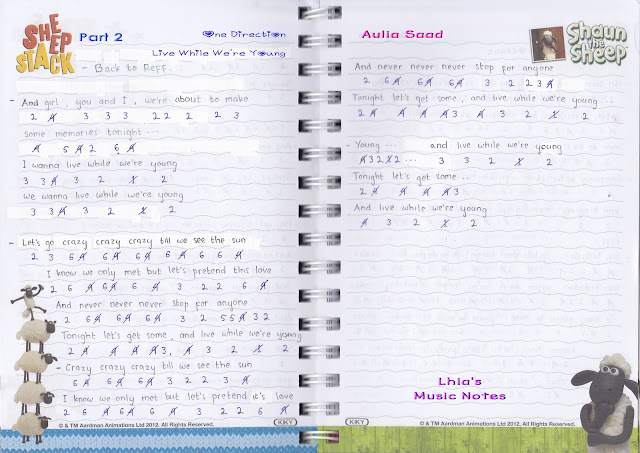 SHEEP STACK
Part 2
One Direction
Live While We're Young
- Back to Reff.
- And girl, you and I, we're about to make
2 4̸ 3 3 3 2 2 2 2 3
some memories tonight ...
4̸ 5 4̸ 2 6 4̸
I wanna live while we're young
3 3 4̸ 3 2 1̸ 2
We wanna live while we're young
3 3 4̸ 3 2 1̸ 2
- Let's go crazy crazy crazy till we see the sun
2 3 6 4̸ 6 4̸ 6 4̸ 6 4̸ 6 6 4̸
I know we only met but let's pretend this love
2 6 4̸ 6 4̸ 6 4̸ 3 2 2 6 4̸
And never never never stop for anyone
2 6 4̸ 6 4̸ 6 4̸ 3 2 5 5 4̸ 3 2
Tonight let's get some, and live while we're young
2 4̸ 4̸ 4̸ 4̸ 3, 4̸ 3 2 1̸ 2
- Crazy crazy crazy till we see the sun
6 4̸ 6 4̸ 6 4̸ 3 2 2 3 4̸
I know we only met but let's pretend it's love
2 6 4̸ 6 4̸ 6 4̸ 3 2 2 6 4̸
© & TM Aardman Animations Ltd 2012. All Rights Reserved.
KIKY
Aulia Saad
Shaun the Sheep
And never never never stop for anyone
2 6 4̸ 6 4̸ 6 4̸ 3 2 2 3 4̸
Tonight let's get some, and live while we're young ...
2 4̸ 4̸ 4̸ 4̸ 3 4̸ 3 2 1̸ 2
- Young ... and live while we're young
4̸ 3 2 1̸ 2 ... 3 3 2 1̸ 2
Tonight let's get some ..
2 4̸ 4̸ 4̸ 4̸ 3
And live while we're young
4̸ 3 2 1̸ 2
Lhia's
Music Notes
© & TM Aardman Animations Ltd 2012. All Rights Reserved.
KIKY